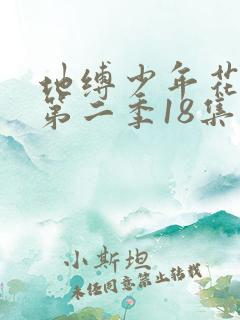 地缚少年花
第二季18集
小斯坦
未经同意禁止转载